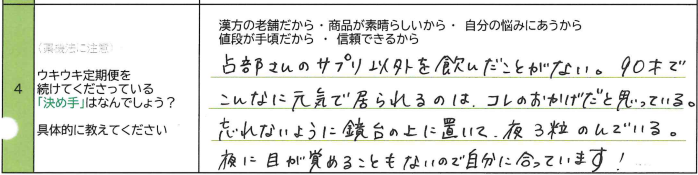 (薬機法に注意)
4
ウキウキ定期便を
続けてくださっている
「決め手」はなんでしょう？
具体的に教えてください
漢方の老舗だから ・ 商品が素晴らしいから ・ 自分の悩みにあうから
値段が手頃だから ・ 信頼できるから
占部さんのサプリ以外を飲んだことがない。90才で
こんなに元気で居られるのは、コレのおかげだと思っている。
忘れないように鏡台の上に置いて、夜3粒のんでいる。
夜に目が覚めることもないので自分に合っています!